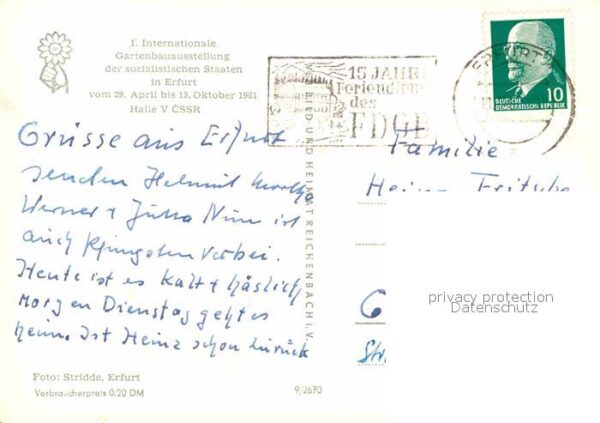 1. Internationale
Gartenbauausstellung
der sozialistischen Staaten
in Erfurt
vom 29. April bis 15. Oktober 1961
Halle V ČSSR
15 JAHRE
Feriendienst
des
FDGB
ERFURT
DEUTSCHE
DEMOKRATISCHE REPUBLIK
10
Grüsse aus Erfurt
senden Helmut
Werner + Jutta Nun ist
auch Pfingsten vorbei.
Heute ist es kalt + häslich
Morgen Dienstag geht es
heim. Ist Heinz schon zurück
Familie
Fritsche
G
Str.
BILD UND HEIMAT REICHENBACH I. V.
privacy protection
Datenschutz
Foto: Stridde, Erfurt
Verbraucherpreis 0,20 DM
9/2670